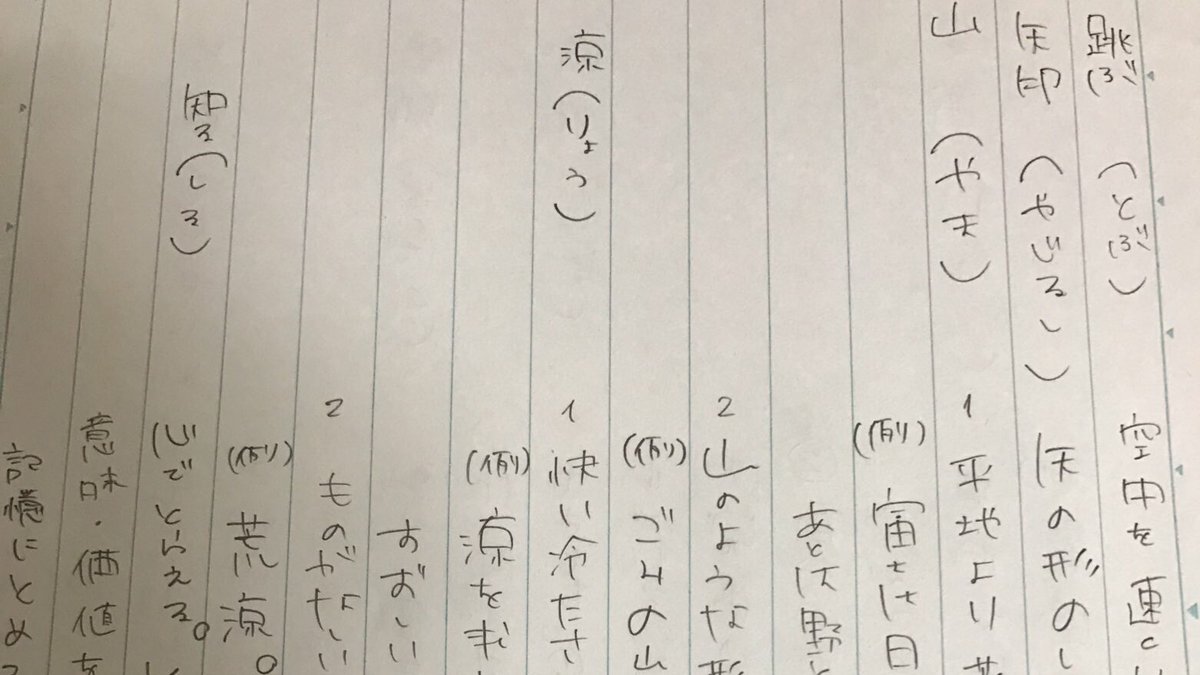 跳ぶ (とぶ) 空中を
矢印 (やじるし) 矢の形のし
山 (やま) 1 平地より
(例) 富士は日
あとは野
2 山のような形
(例) ゴミの山
涼(りょう) 1 快い冷たさ
(例) 涼を
すずしい
2 ものがない
(例) 荒涼。
知る(しる) 心でとらえる。
意味・価値を
記憶にとめ